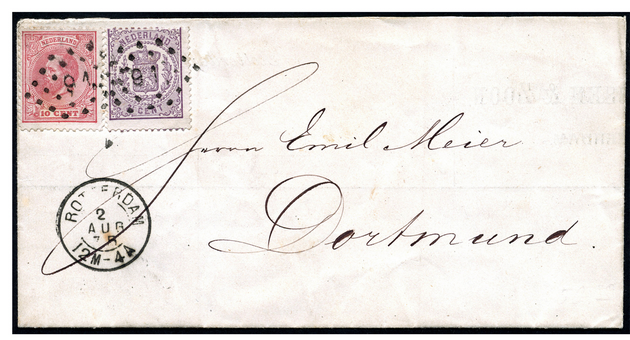 NEDERLAND
10 CENT
NEDERLAND
CENT
91
91
Herrn Emil Meier
Dortmund.
ROTTERDAM
2
AUG
12M-4A